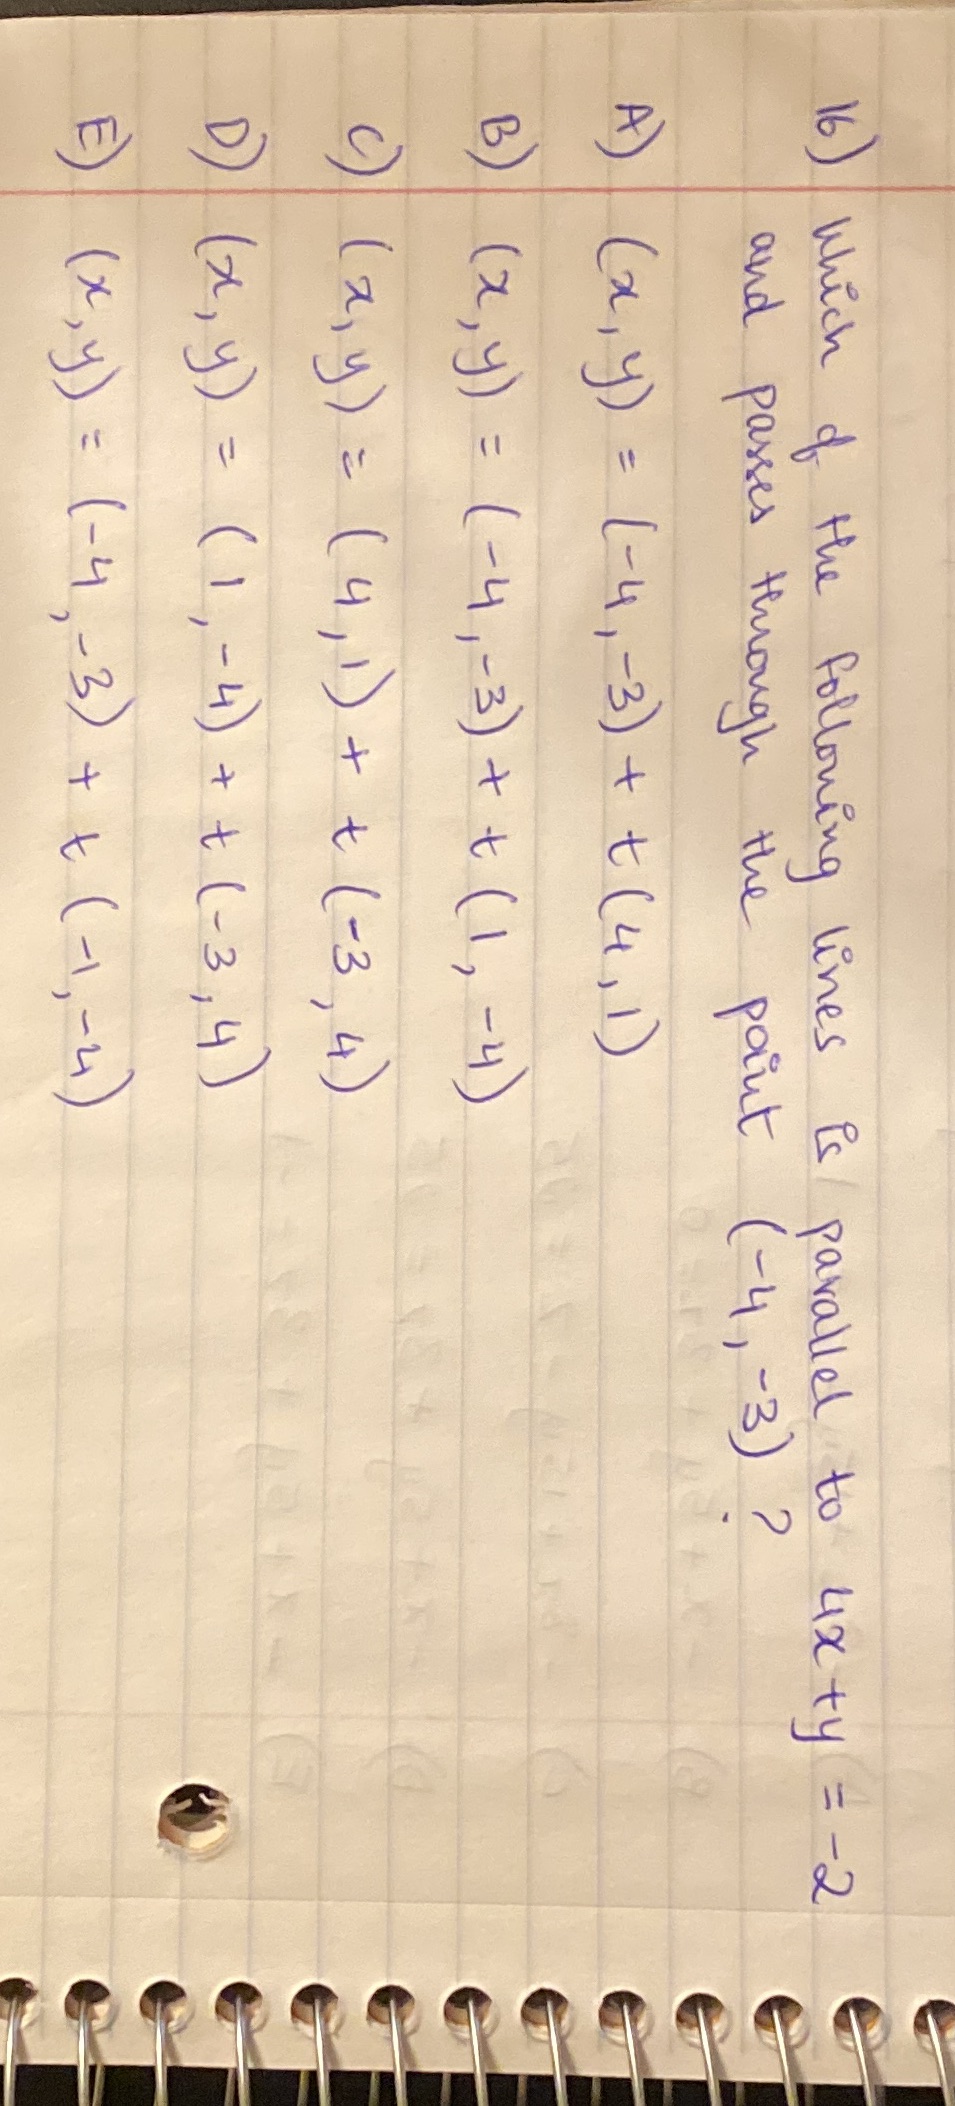 16) Which of the following lines is parallel to 4x+y = -2
and passes through the point (-4,-3) ?
A) (x,y) = (-4,-3) + t(4,1)
B) (x,y) = (-4,-3) + t(1,-4)
C) (x,y) = (4,1) + t(-3,4)
D) (x,y) = (1,-4) + t(-3,4)
E) (x,y) = (-4,-3) + t(-1,-4)